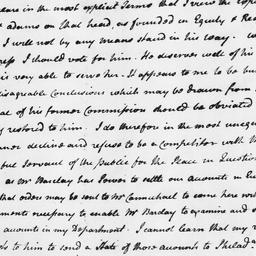 dare in the most explicit Terms that I revere the
Adams on that head, as founded in Equity & Rea
I will not by any means stand in his way.
ress I should vote for him. He deserves well of his
is very able to serve her. It appears to me to be bu
disagreable Conclusions which may be drawn from
al of his former Commission should be obviated
y restored to him. I do therefor in the most unequ
ner decline and refuse to be a Competitor with
but Servant of the public for the Place in Question
as Mr Barclay has Power to settle our accounts in Eu
that orders may be sent to Mr Carmichael to come here with
ments necessary to enable Mr Barclay to examine and
accounts in my Department. I cannot learn that my
to him to send a State of those accounts to Philada